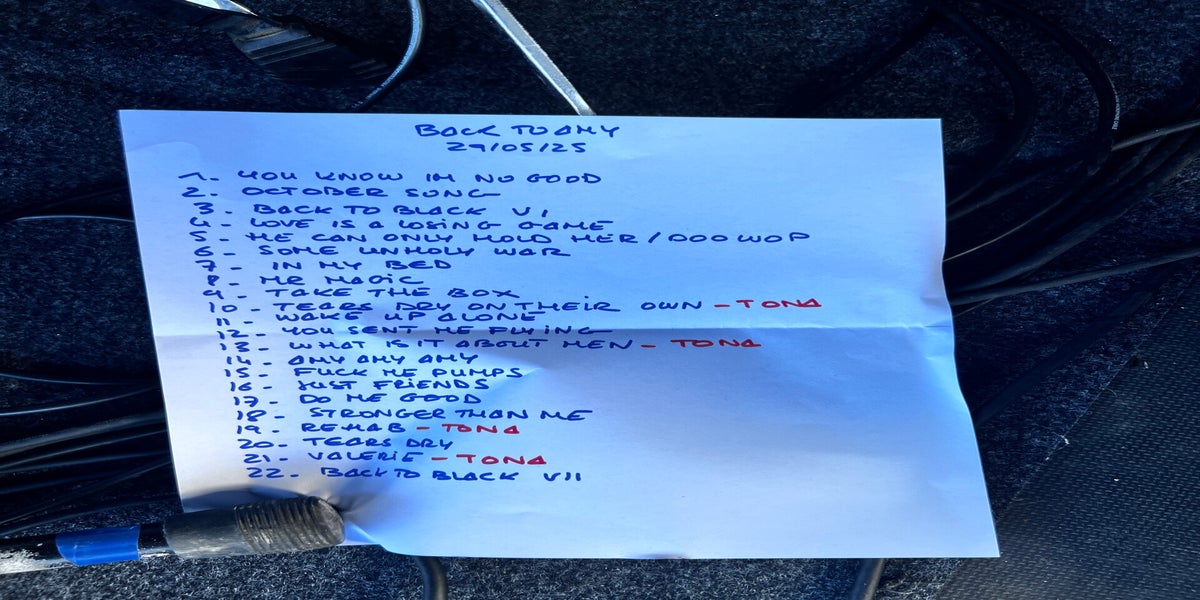 BACK TO AMY
29/05/25
1. YOU KNOW IM NO GOOD
2. OCTOBER SONG
3. BACK TO BLACK V I
4- LOVE IS A LOSING GAME
5- HE CAN ONLY HOLD HER / DOO WOP
6- SOME UNHOLY WAR
7- IN MY BED
8- MR MAGIC
9- TAKE THE BOX
10- TEARS DRY ON THEIR OWN - TONA
11- WAKE UP ALONE
12- YOU SENT ME FLYING
13- WHAT IS IT ABOUT MEN - TONA
14- AMY AMY AMY
15- FUCK ME PUMPS
16- JUST FRIENDS
17- DO ME GOOD
18- STRONGER THAN ME
19- REHAB - TONA
20- TEARS DRY
21- VALERIE - TONA
22- BACK TO BLACK VII